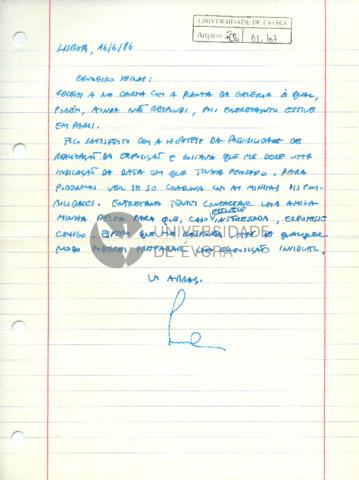 UNIVERSIDADE DE ÉVORA
Arquivo
LISBOA, 16/6/86
CRUZEIRO SEIXAS:
RECEBI A CARTA COM A PLANTA DA GALERIA À QUAL,
PORÉM, AINDA NÃO RESPONDI, POIS ENTRETANTO ESTIVE
EM PARIS.
FICO SATISFEITO COM A HIPÓTESE DA POSSIBILIDADE DE
REALIZAÇÃO DA EXPOSIÇÃO E GOSTAVA QUE ME DESSE UMA
INDICAÇÃO DA DATA EM QUE TINHA PENSADO, PARA
PODERMOS VER SE SE COADUNA COM AS MINHAS DISPONI-
BILIDADES. ENTRETANTO CONTACTAR UMA AMIGA
MINHA PARA QUE, CASO INTERESSADA, EXPUSESSE
COMIGO. DE QUALQUER
MODO PODEREI PREPARAR UMA EXPOSIÇÃO INDIVIDUAL.
UM ABRAÇO
UNIVERSIDADE
DE ÉVORA